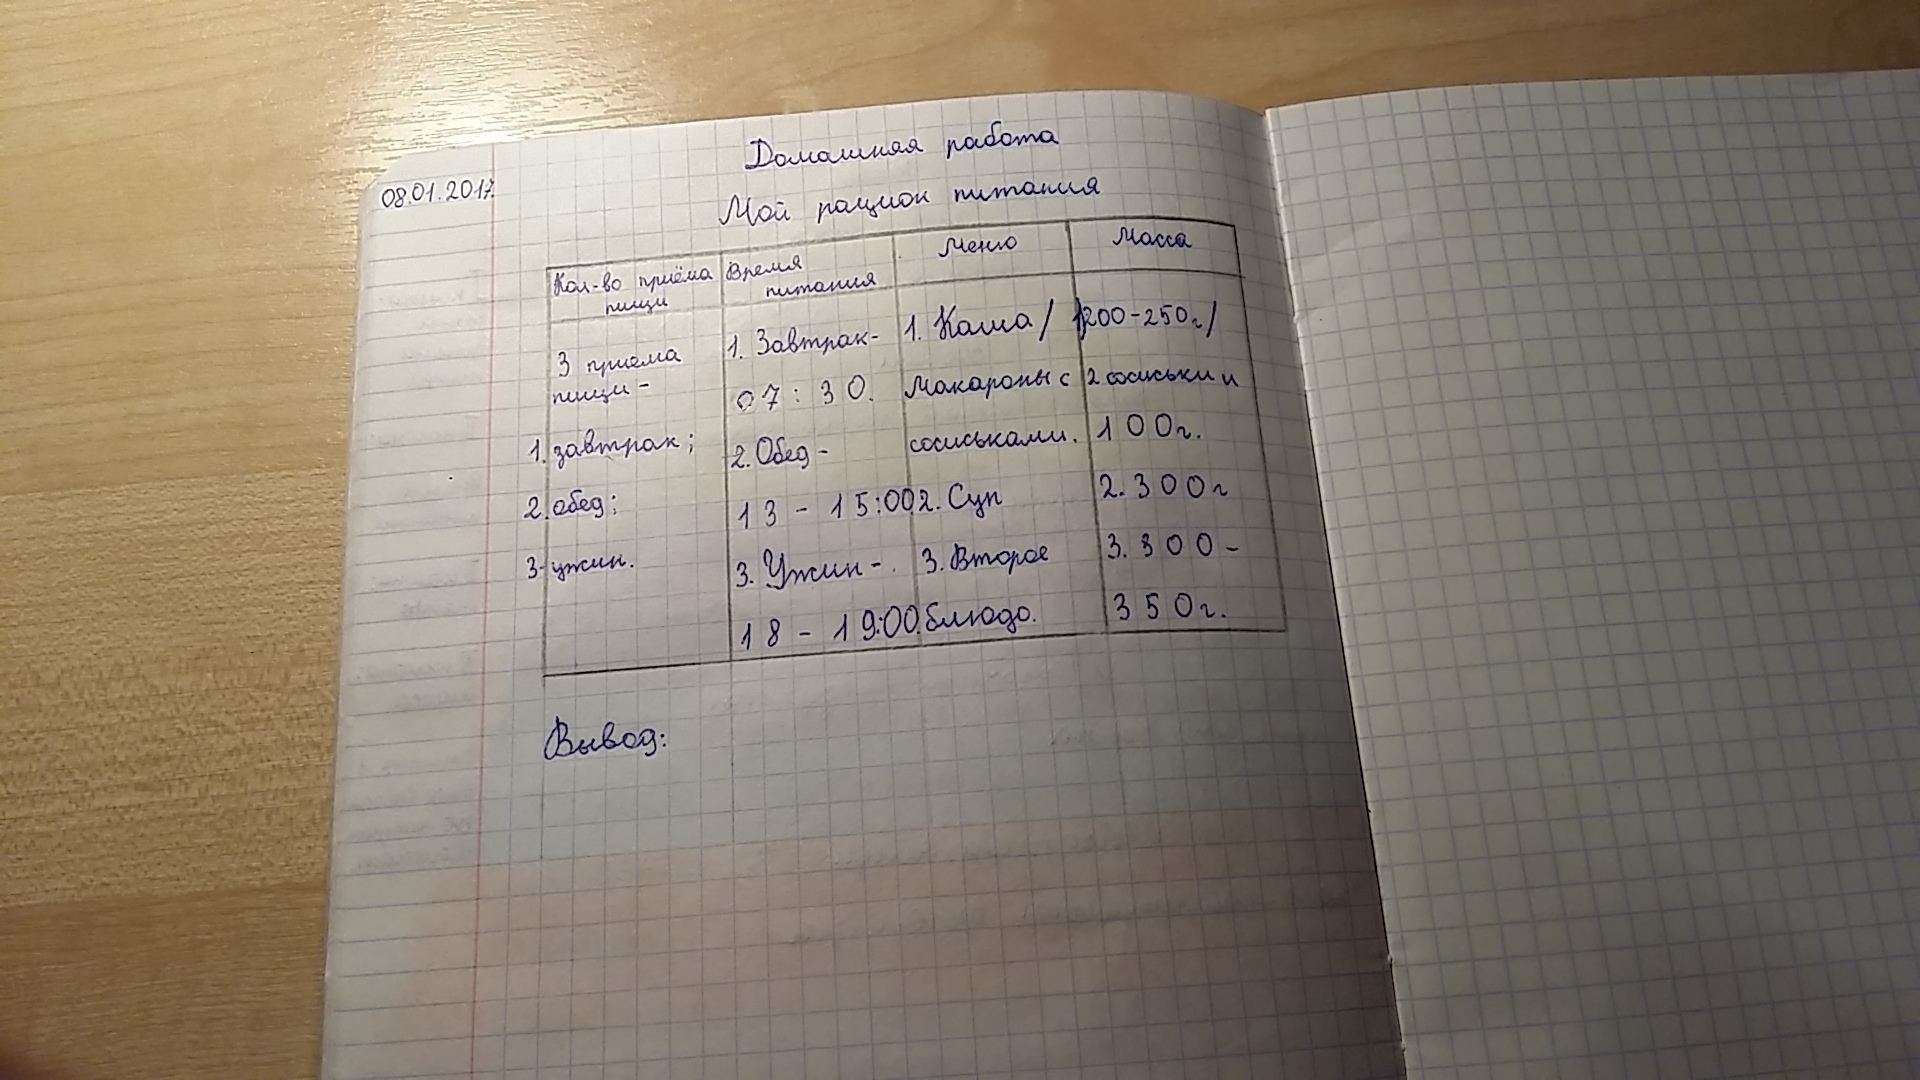 Домашняя работа
08.01.2017
Мой рацион питания
Кол-во приёма пищи
Время питания
Меню
Масса
3 приема
пищи -
1. завтрак;
2. обед;
3. ужин.
1. Завтрак-
07:30.
2. Обед -
13 - 15:00
3. Ужин -.
18 - 19:00.
1. Каша/
Макароны с
сосиськами.
2. Суп
3. Второе
блюдо.
1)200-250г/
2 сосиськи и
100г.
2. 300г
3. 300-
350г.
Вывод: